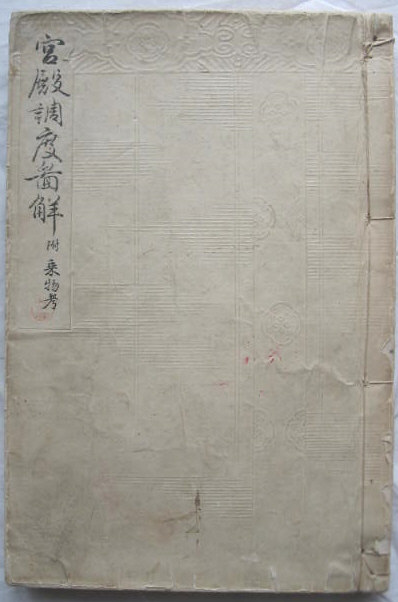 宮殿調度啚解附乗物考